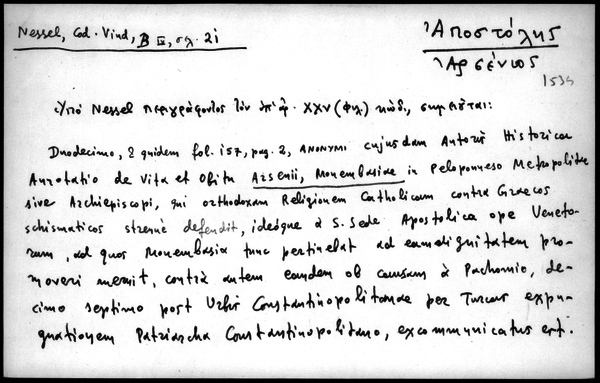 Nessel, Cod. Vind, B IX, σελ. 21
Ἀποστόλης
Ἀρσένιος
1535
Ὑπὸ Nessel περιγράφοντος τὸν ὑπ' ἀρ. XXV (φιλ) κώδ., σημειοῦται:
Duodecimo, & quidem fol. 157, pag. 2, ANONYMI cujusdam Autoris Historica
Annotatio de Vita et Obitu Arsenii, Monembasiae in Peloponneso Metropolitae
sive Archiepiscopi, qui orthodoxam Religionem Catholicam contra Graecos
schismaticos strenuè defendit, ideóque à S. Sede Apostolica ope Veneto-
rum, ad quos Monembasia tunc pertinebat ad eam dignitatem pro-
moveri meruit, contrà autem eandem ob causam à Pachomio, de-
cimo septimo post Urbis Constantinopolitanae per Turcas expu-
gnationem Patriarcha Constantinopolitano, excommunicatus est.